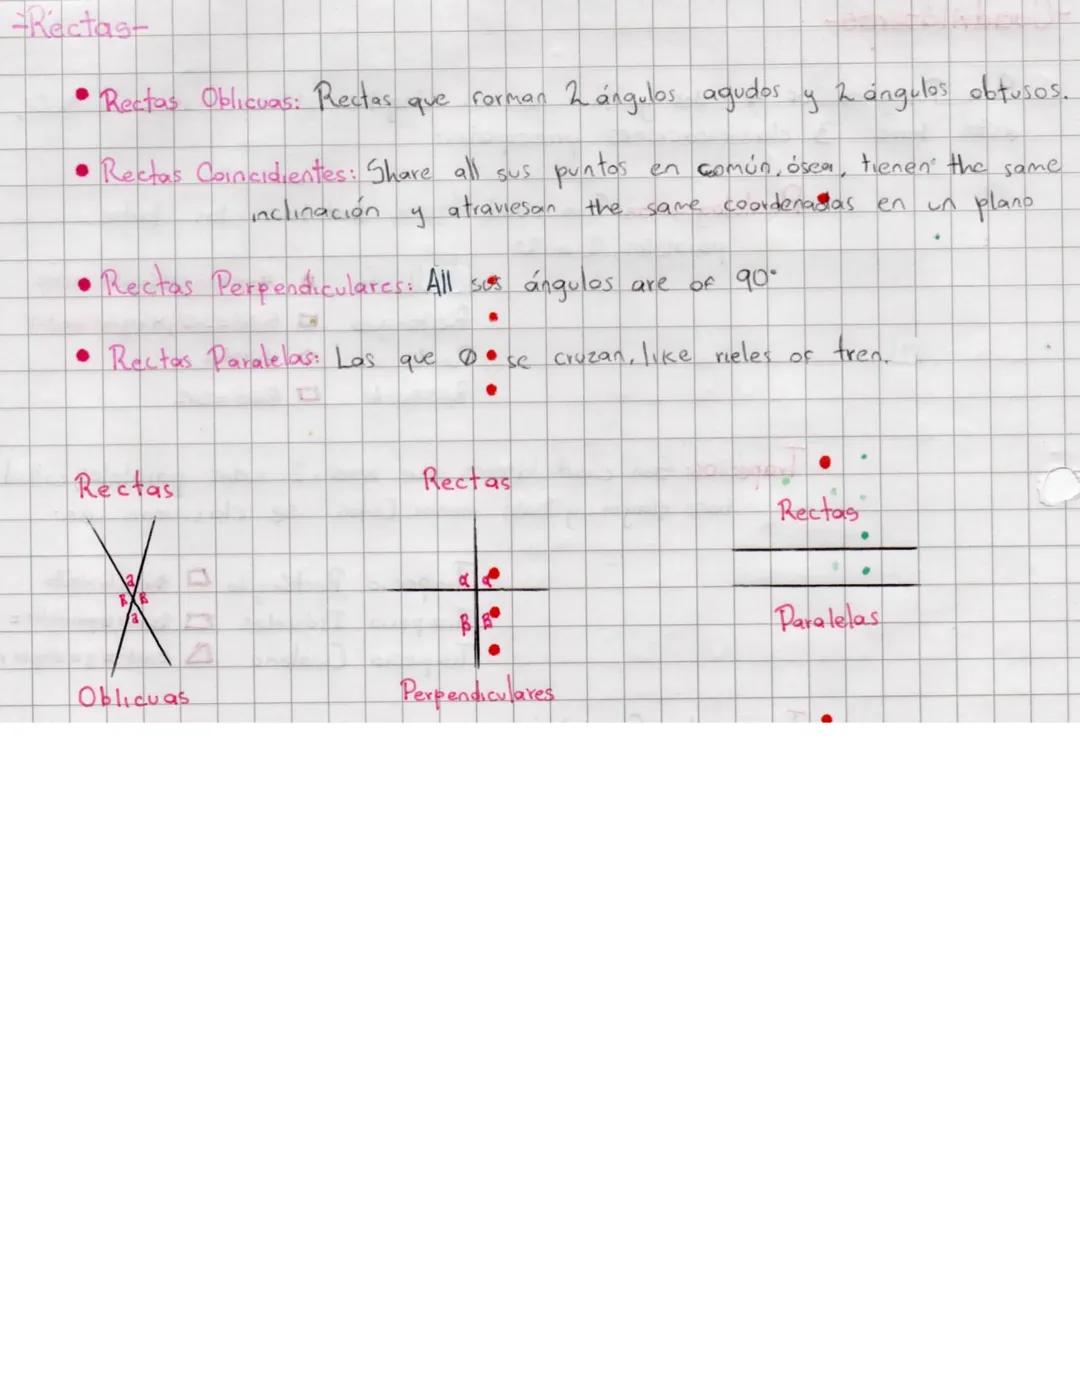 -Rectas-
• Rectas Oblicuas: Rectas que forman 2 ángulos agudos y 2 ángulos obtusos.
• Rectas Coincidientes: Share all sus puntos en común, ósea, tienen the same
inclinación y atraviesan the same coordenadas en un plano
• Rectas Perpendiculares: All sus ángulos are of 90°
• Rectas Paralelas: Las que Ø se cruzan, like rieles of tren.
Rectas
a
B B
a
Oblicuas
Rectas
α α
β β
Perpendiculares
Rectas
Paralelas